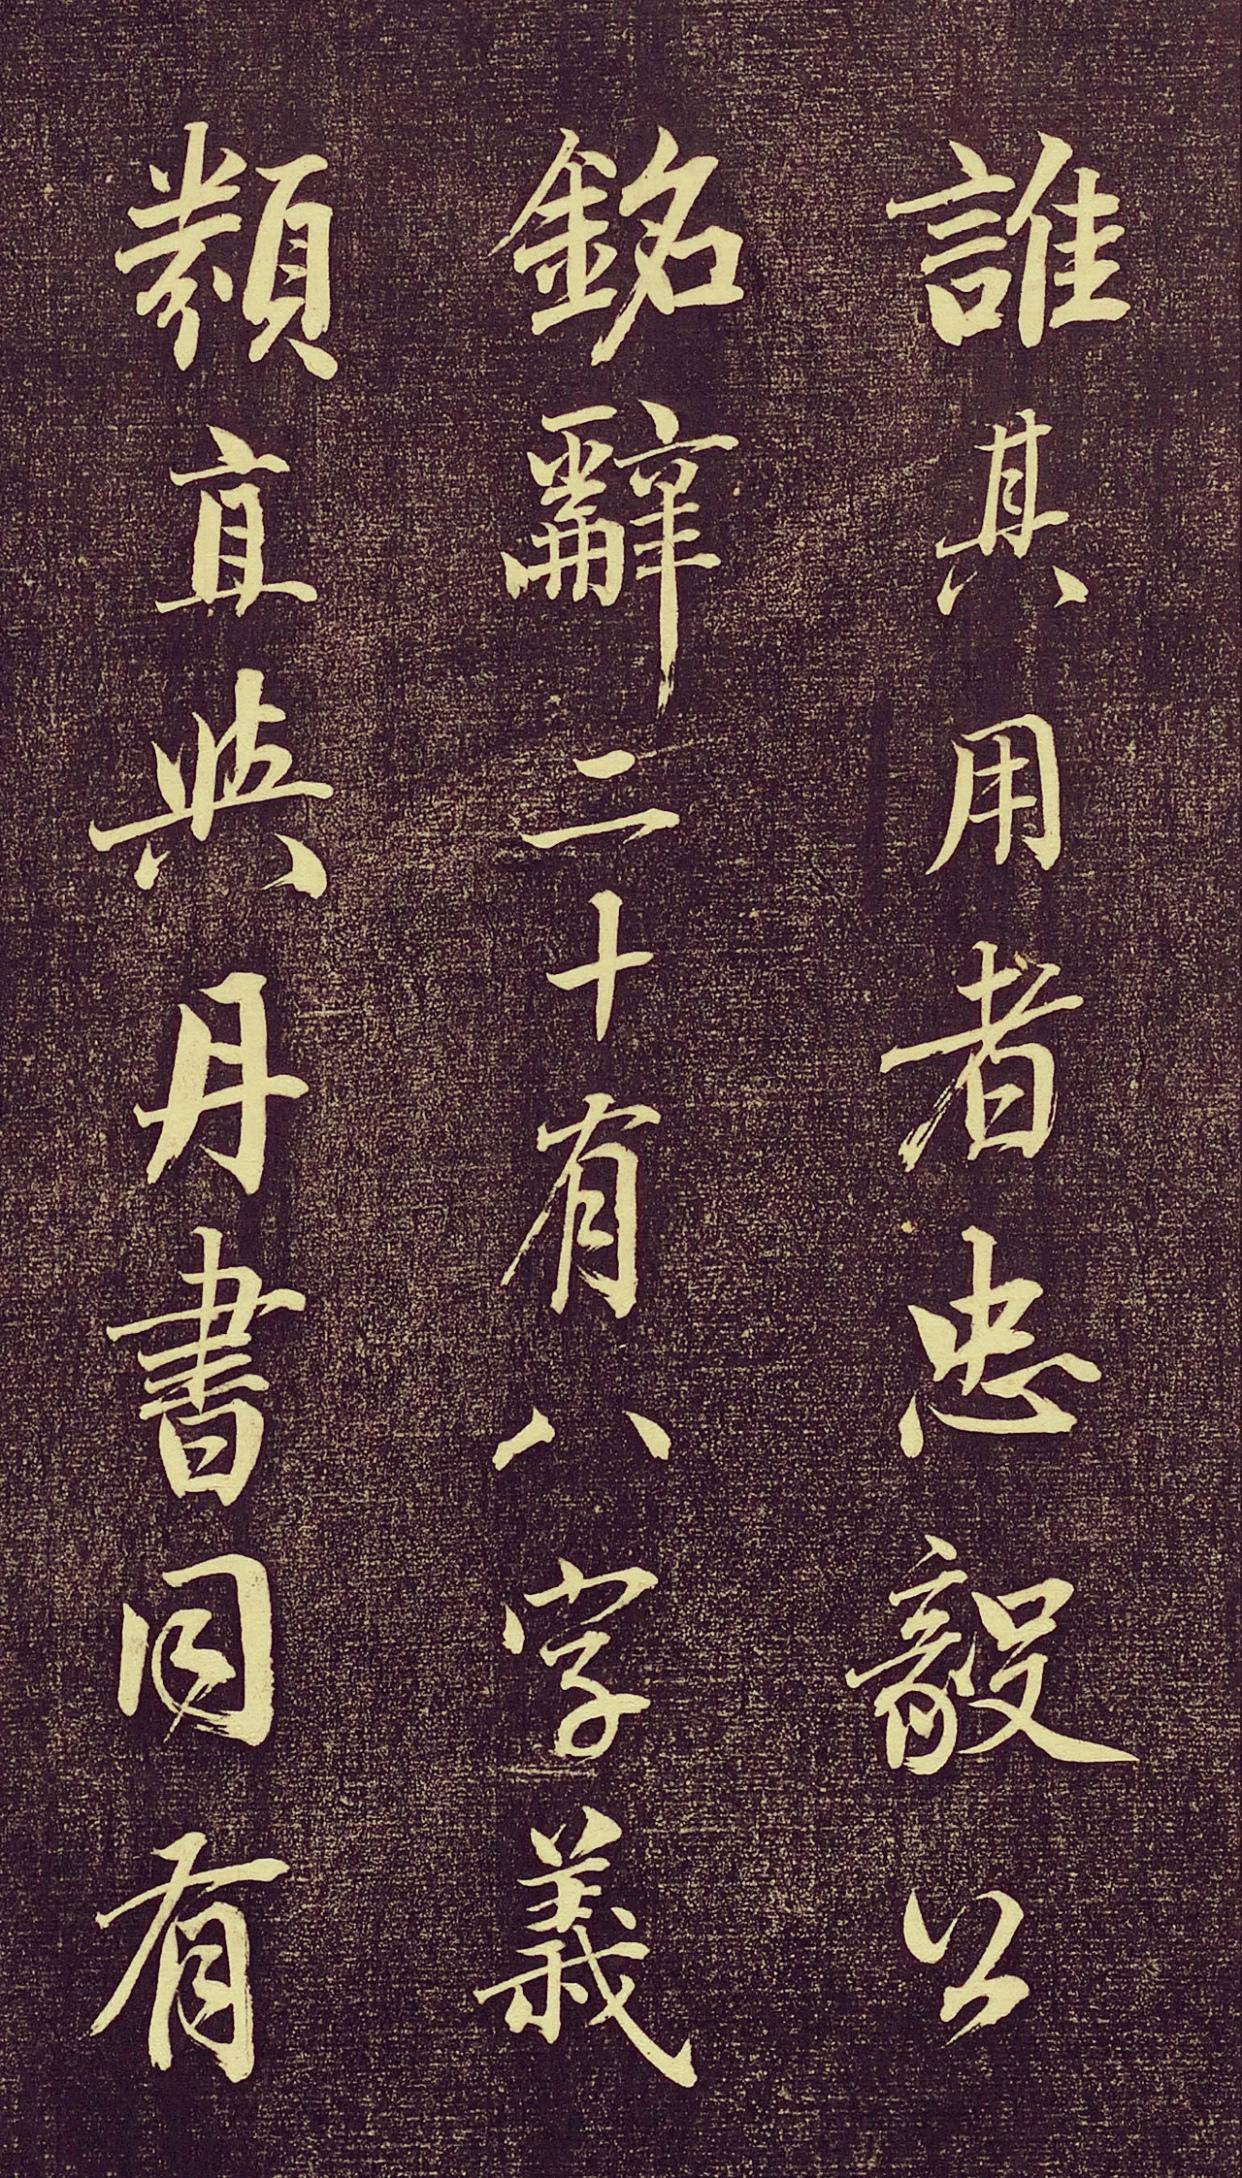 誰其用者忠毅公
銘辭二十有八字義
類直與丹書同有